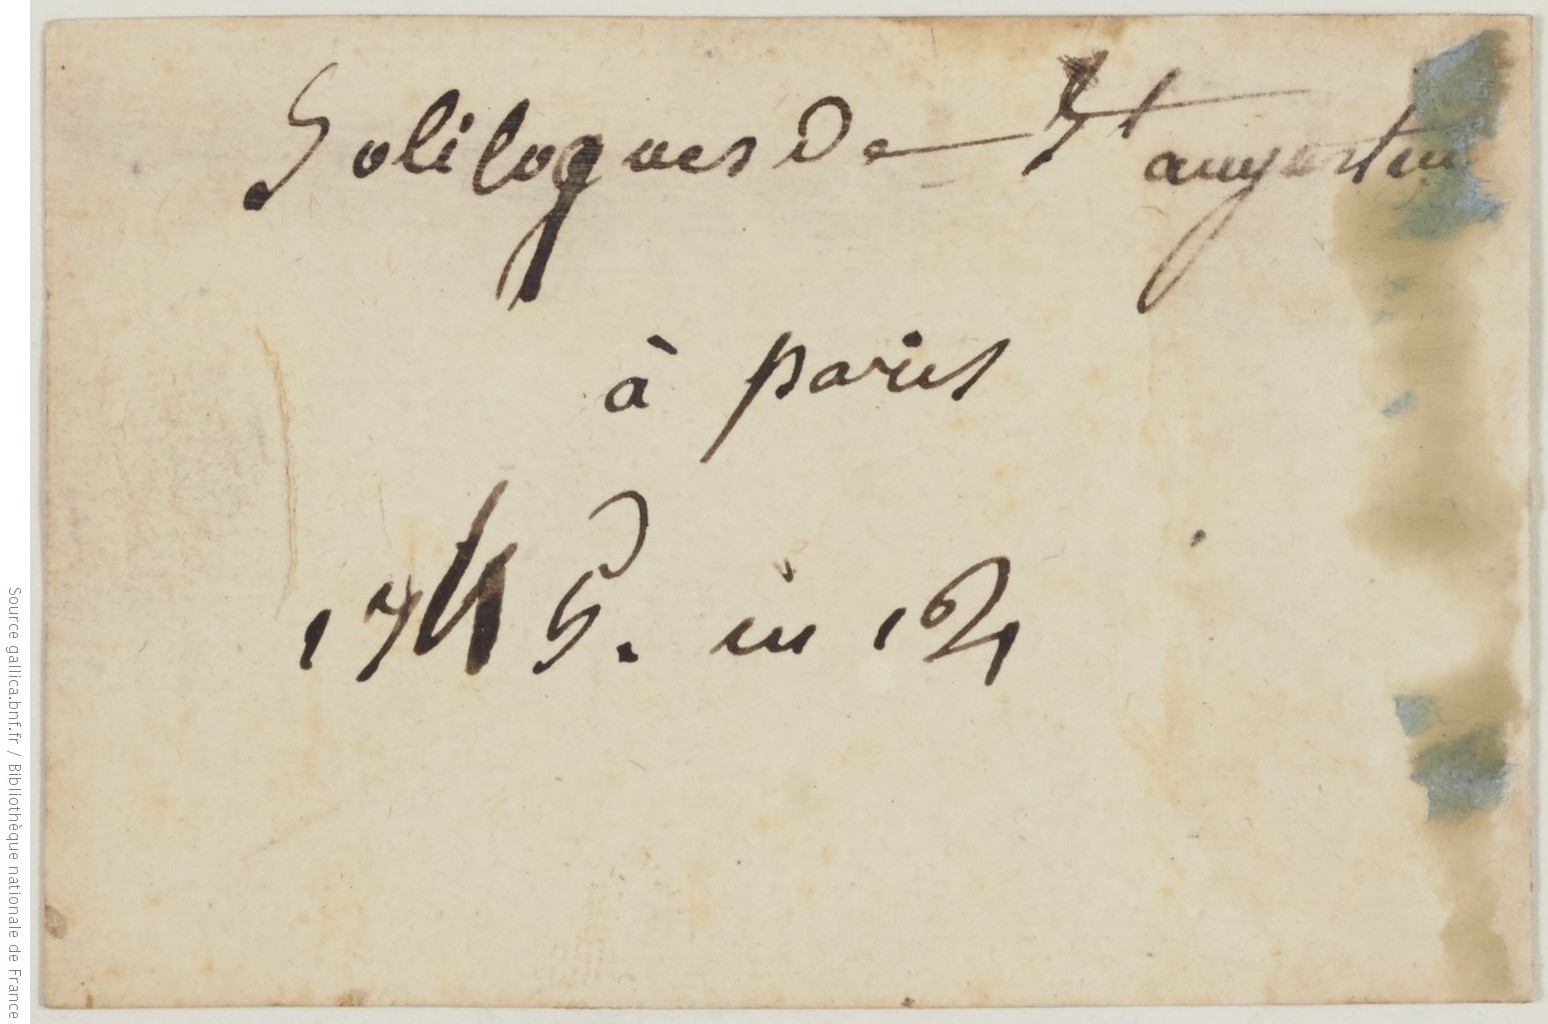 Soliloques de St augustin
à paris
1745. in 12
Source gallica.bnf.fr / Bibliothèque nationale de France